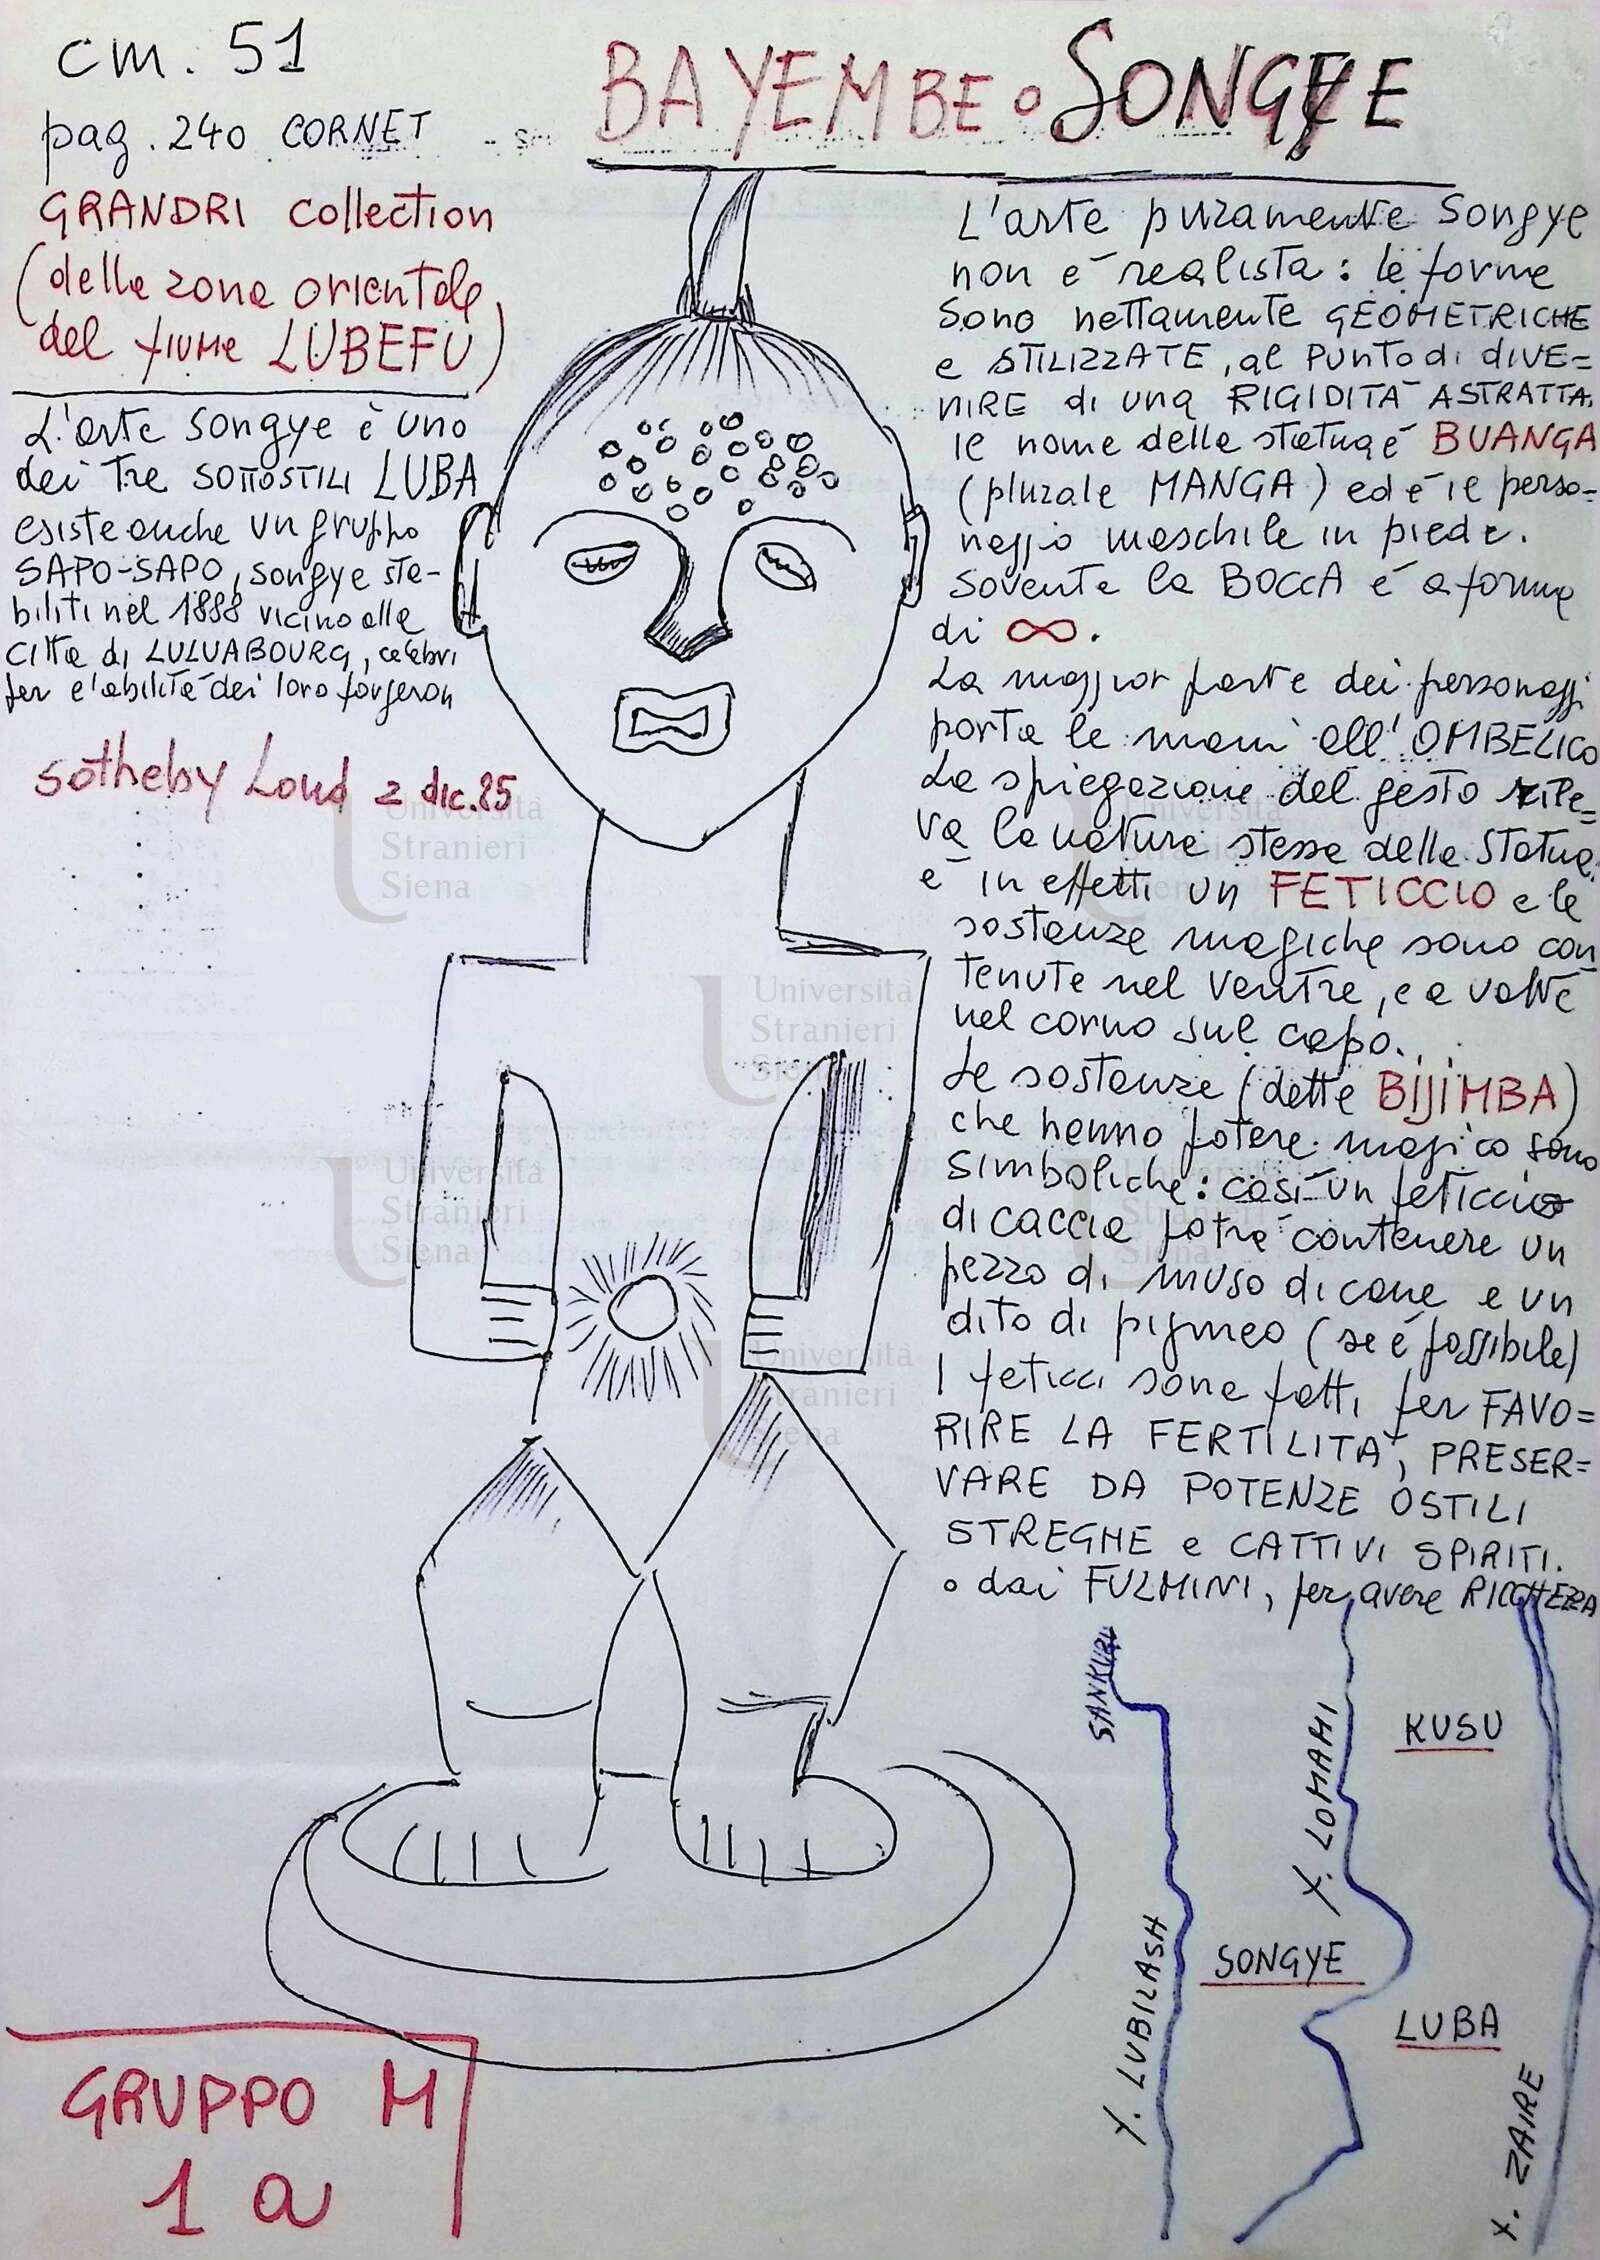 cm. 51
pag. 240 CORNET
GRANDRI collection
(della zona orientale
del fiume LUBEFU)
L'arte songye è uno
dei tre SOTTOSTILI LUBA
esiste anche un gruppo
SAPO-SAPO, songye sta-
biliti nel 1888 vicino alla
città di LULUABOURG, celebri
per l'abilità dei loro forgeron
sotheby Lond 2 dic. 85
BAYEMBE o SONGYE
L'arte puramente Songye
non è realista: le forme
sono nettamente GEOMETRICHE
e STILIZZATE, al PUNTO di DIVE=
NIRE di una RIGIDITÀ ASTRATTA.
il nome della statua è BUANGA
(plurale MANGA) ed è il perso-
naggio maschile in piedi.
sovente la BOCCA è a forma
di ∞.
La maggior parte dei personaggi
porta le mani all'OMBELICO
La spiegazione del gesto rile=
va la natura stessa della statua.
è in effetti un FETICCIO e le
sostanze magiche sono con
tenute nel ventre, e a volte
nel corno sul capo.
Le sostanze (dette BIJIMBA)
che hanno potere magico sono
simboliche: così un feticcio
di caccia potrà contenere un
pezzo di muso di cane e un
dito di pigmeo (se è possibile)
I feticci sono fatti per FAVO=
RIRE LA FERTILITÀ, PRESER=
VARE DA POTENZE OSTILI
STREGHE e CATTIVI SPIRITI.
o dai FULMINI, per avere RICCHEZZA
SANKURU
F. LOMAMI
KUSU
F. LUBILASH
SONGYE
LUBA
F. ZAIRE
GRUPPO M
1 a
Università
Stranieri
Siena
Università
Stranieri
Siena
Università
Stranieri
Siena
Università
Stranieri
Siena